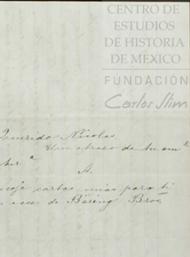 CENTRO DE
ESTUDIOS
DE HISTORIA
DE MÉXICO
FUNDACIÓN
Carlos Slim
Querido Nicolas
Un abrazo de tu am
A.
cartas mias para ti
de Baring Bros